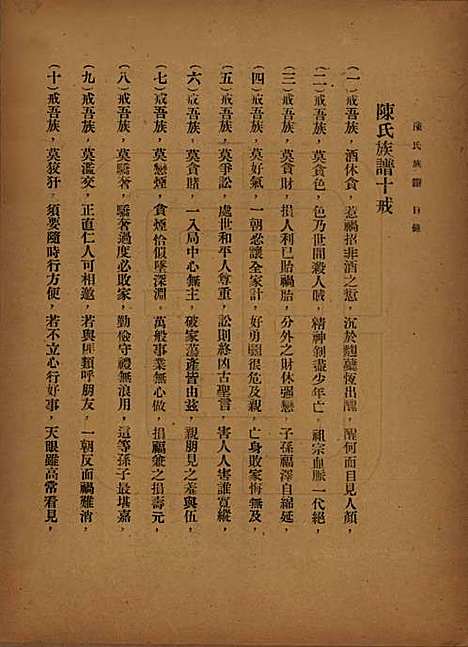 陳氏族譜 目錄
陳氏族譜十戒
(一)戒吾族，酒休貪，惹禍招非酒之愆，沉於麯糵恆出醜，醒何面目見人顏，
(二)戒吾族，莫貪色，色乃世間殺人賊，精神剝盡少年亡，祖宗血脈一代絕，
(三)戒吾族，莫貪財，損人利己貽禍胎，分外之財休強戀，子孫福澤自綿延，
(四)戒吾族，莫好氣，一朝忿讓全家計，好勇鬬很危及親，亡身敗家悔無及，
(五)戒吾族，莫爭訟，處世和平人尊重，訟則終凶古聖言，害人人害誰寬縱，
(六)戒吾族，莫貪賭，一入局中心無主，破家蕩產皆由茲，親朋見之羞與伍，
(七)戒吾族，莫戀煙，貪煙恰似墜深淵，萬般事業無心做，損福兼之損壽元，
(八)戒吾族，莫驕奢，驕奢過度必敗家，勤儉守禮無浪用，這等孫子最堪嘉，
(九)戒吾族，莫濫交，正直仁人可相邀，若與匪類呼朋友，一朝反面禍難消，
(十)戒吾族，莫狡奸，須要隨時行方便，若不立心行好事，天眼雖高常看見，